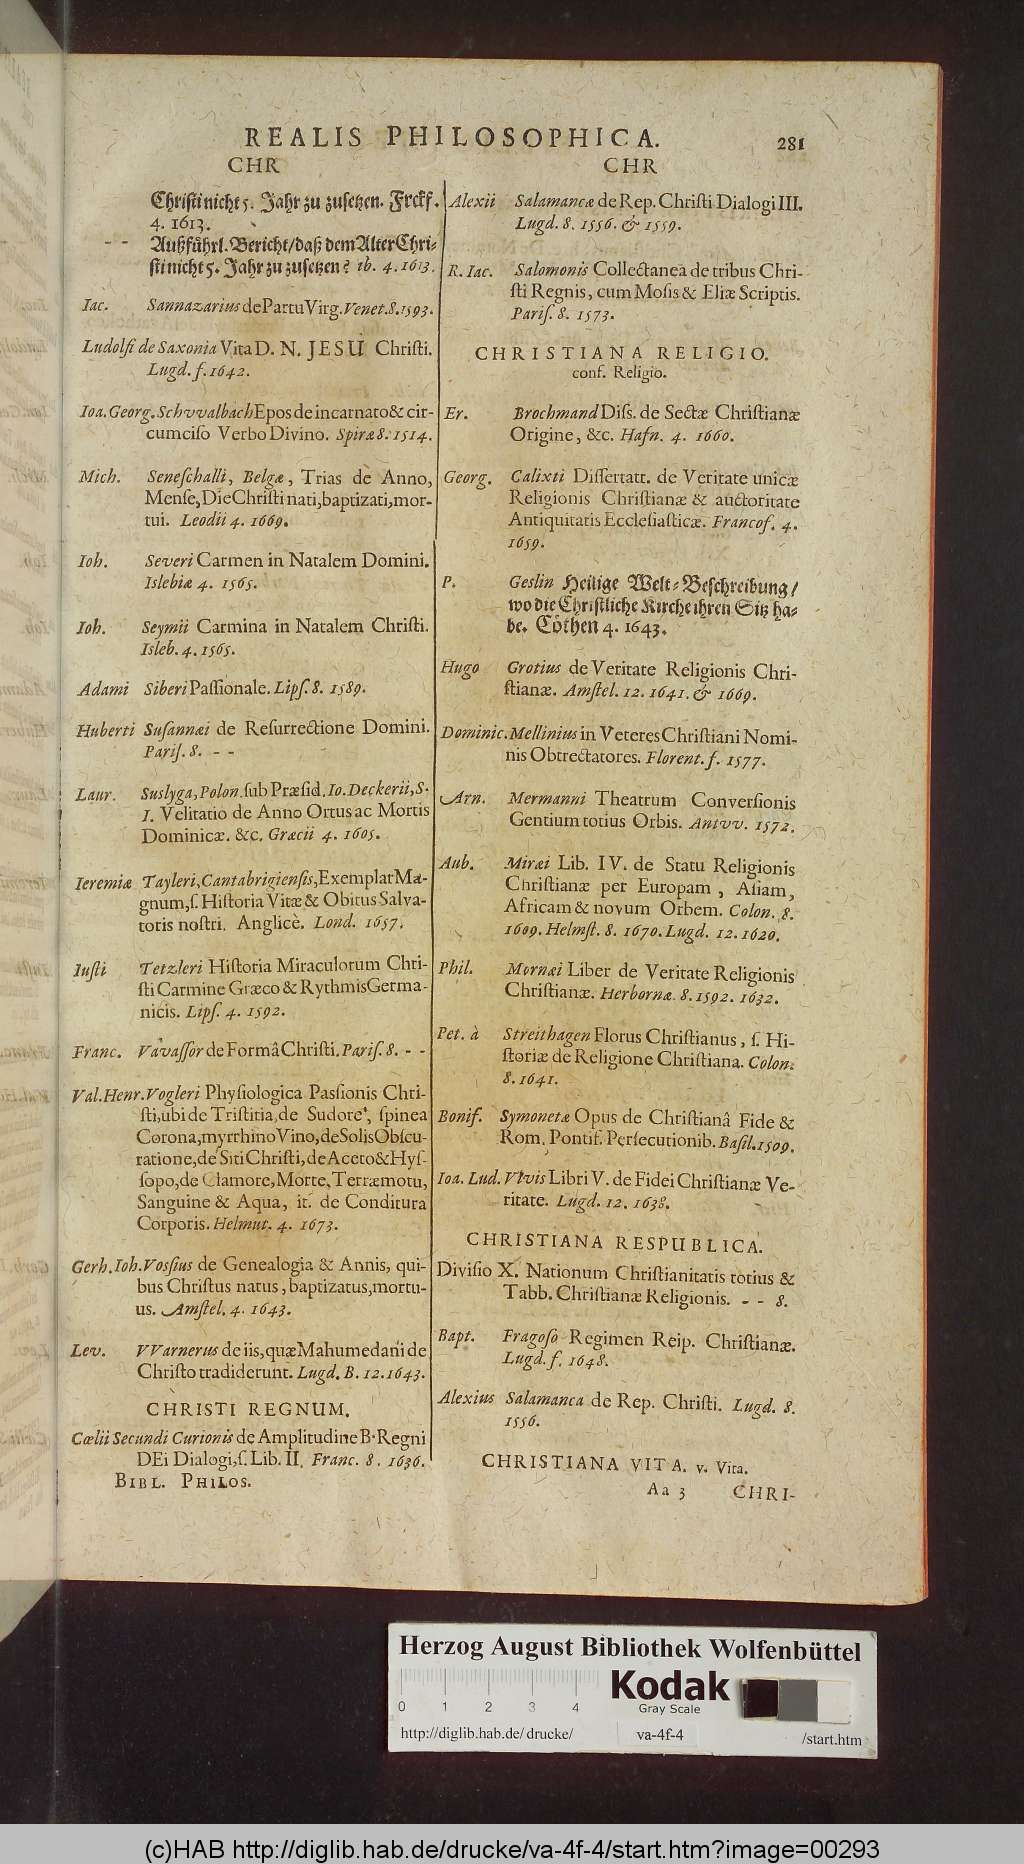 REALIS PHILOSOPHICA. 281
CHR
Christi nicht 5. Jahr zu zusetzen. Frckf.
4. 1613.
- - Außführl. Bericht/ daß dem Alter Chri-
sti nicht 5. Jahr zu zusetzen? ib. 4. 1613.
Iac. Sannazarius de Partu Virg. Venet. 8. 1593.
Ludolfi de Saxonia Vita D. N. JESU Christi.
Lugd. f. 1642.
Ioa. Georg. Schvvalbach Epos de incarnato & cir-
cumciso Verbo Divino. Spiræ 8. 1514.
Mich. Seneschalli, Belgæ, Trias de Anno,
Mense, Die Christi nati, baptizati, mor-
tui. Leodii 4. 1669.
Ioh. Severi Carmen in Natalem Domini.
Islebiæ 4. 1565.
Ioh. Seymii Carmina in Natalem Christi.
Isleb. 4. 1565.
Adami Siberi Passionale. Lips. 8. 1589.
Huberti Susannæi de Resurrectione Domini.
Paris. 8. - -
Laur. Suslyga, Polon. sub Præsid. Io. Deckerii, S.
I. Velitatio de Anno Ortus ac Mortis
Dominicæ. &c. Græcii 4. 1605.
Ieremiæ Tayleri, Cantabrigiensis, Exemplar Ma-
gnum, s. Historia Vitæ & Obitus Salva-
toris nostri. Anglicè. Lond. 1657.
Iusti Tetzleri Historia Miraculorum Chri-
sti Carmine Græco & Rythmis Germa-
nicis. Lips. 4. 1592.
Franc. Vavassor de Formâ Christi. Paris. 8. - -
Val. Henr. Vogleri Physiologica Passionis Chri-
sti, ubi de Tristitia, de Sudore, spinea
Corona, myrrhino Vino, de Solis Obscu-
ratione, de Siti Christi, de Aceto & Hys-
sopo, de Clamore, Morte, Terræmotu,
Sanguine & Aqua, it. de Conditura
Corporis. Helmut. 4. 1673.
Gerh. Ioh. Vossius de Genealogia & Annis, qui-
bus Christus natus, baptizatus, mortu-
us. Amstel. 4. 1643.
Lev. VVarnerus de iis, quæ Mahumedani de
Christo tradiderunt. Lugd. B. 12. 1643.
CHRISTI REGNUM.
Cœlii Secundi Curionis de Amplitudine B. Regni
DEi Dialogi, s. Lib. II. Franc. 8. 1636.
BIBL. PHILOS.
CHR
Alexii Salamancæ de Rep. Christi Dialogi III.
Lugd. 8. 1556. & 1559.
R. Iac. Salomonis Collectanea de tribus Chri-
sti Regnis, cum Mosis & Eliæ Scriptis.
Paris. 8. 1573.
CHRISTIANA RELIGIO.
conf. Religio.
Er. Brochmand Diss. de Sectæ Christianæ
Origine, &c. Hafn. 4. 1660.
Georg. Calixti Dissertatt. de Veritate unicæ
Religionis Christianæ & auctoritate
Antiquitatis Ecclesiasticæ. Francof. 4.
1659.
P. Geslin Heilige Welt-Beschreibung/
wo die Christliche Kirche ihren Sitz ha-
be. Cöthen 4. 1643.
Hugo Grotius de Veritate Religionis Chri-
stianæ. Amstel. 12. 1641. & 1669.
Dominic. Mellinius in Veteres Christiani Nomi-
nis Obtrectatores. Florent. f. 1577.
Arn. Mermanni Theatrum Conversionis
Gentium totius Orbis. Antvv. 1572.
Aub. Miræi Lib. IV. de Statu Religionis
Christianæ per Europam, Asiam,
Africam & novum Orbem. Colon. 8.
1609. Helmst. 8. 1670. Lugd. 12. 1620.
Phil. Mornæi Liber de Veritate Religionis
Christianæ. Herbornæ 8. 1592. 1632.
Pet. à Streithagen Florus Christianus, s. Hi-
storiæ de Religione Christiana. Colon.
8. 1641.
Bonif. Symonetæ Opus de Christianâ Fide &
Rom. Pontif. Persecutionib. Basil. 1509.
Ioa. Lud. Vivis Libri V. de Fidei Christianæ Ve-
ritate. Lugd. 12. 1638.
CHRISTIANA RESPUBLICA.
Divisio X. Nationum Christianitatis totius &
Tabb. Christianæ Religionis. - - 8.
Bapt. Fragoso Regimen Reip. Christianæ.
Lugd. f. 1648.
Alexius Salamanca de Rep. Christi. Lugd. 8.
1556.
CHRISTIANA VITA. v. Vita.
Aa 3 CHRI-
Herzog August Bibliothek Wolfenbüttel
0 1 2 3 4
Kodak
Gray Scale
http://diglib.hab.de/drucke/ va-4f-4 /start.htm
(c)HAB http://diglib.hab.de/drucke/va-4f-4/start.htm?image=00293